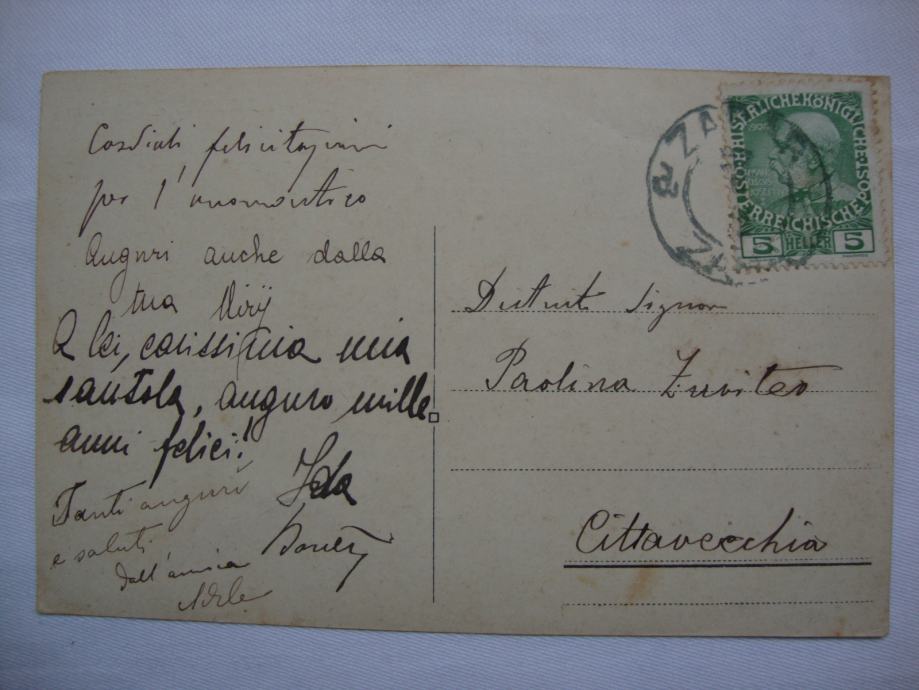 Cordiali felicitazioni
per l'onomastico
Auguri anche dalla
tua
A lei, carissima mia
santola, auguro mille
anni felici!
Ida
Tanti auguri
e saluti
dall'amica
Adele
KAISERLICHE KÖNIGLICHE ÖSTERREICHISCHE POST
5 HELLER 5
ZARA
Signora
Paolina
Cittavecchia